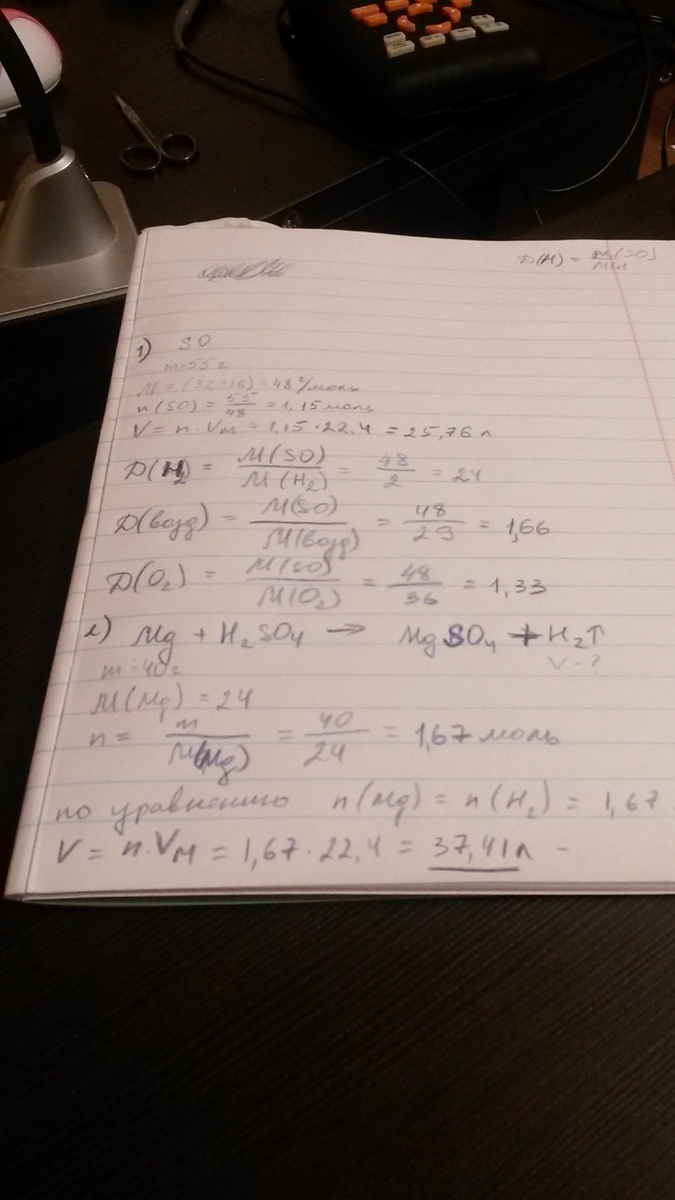 D(H) = M(SO)/M(H
1) SO
m=55г
M = (32+16) = 48 г/моль
n(SO) = 55/48 = 1,15 моль
V = n·Vм = 1,15·22,4 = 25,76 л
D(H₂) = M(SO)/M(H₂) = 48/2 = 24
D(возд) = M(SO)/M(возд) = 48/29 = 1,66
D(O₂) = M(SO)/M(O₂) = 48/36 = 1,33
2) Mg + H₂SO₄ → MgSO₄ + H₂↑
m=40г V-?
M(Mg) = 24
n = m/M(Mg) = 40/24 = 1,67 моль
по уравнению n(Mg) = n(H₂) = 1,67
V = n·Vм = 1,67·22,4 = 37,41 л